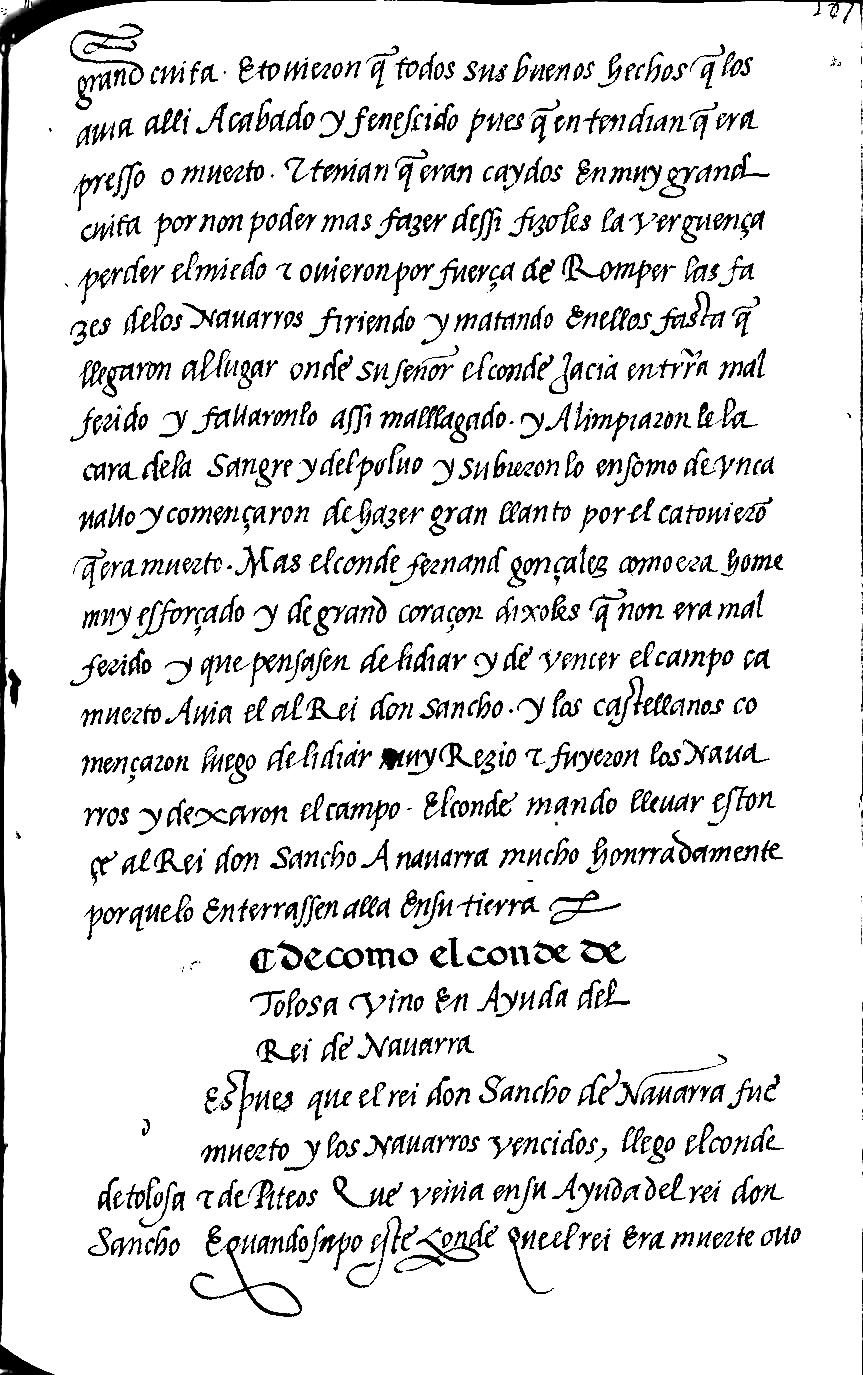 167
grand cuita. E touieron q̃ todos sus buenos hechos q̃ los
auia alli Acabado y fenescido pues q̃ entendian q̃ era
presso o muerto. τ tenian q̃ eran caydos En muy grand
cuita por non poder mas fazer dessi fizoles la verguença
perder el miedo τ ouieron por fuerça de Romper las fa
zes delos Nauarros firiendo y matando Enellos fasta q̃
llegaron al lugar onde su señor el conde Jacia en trr̃a mal
ferido y fallaronlo assi mal llagado. y Alimpiaron le la
cara dela Sangre y del poluo y subieron lo ensomo de vn ca
uallo y començaron de hazer gran llanto por el ca touierõ
q̃ era muerto. Mas el conde fernand gonçalez como era home
muy esforçado y de grand coraçon dixoles q̃ non era mal
ferido y que pensasen de lidiar y de vencer el campo ca
muerto Auia el al Rei don sancho. y los castellanos co
mençaron luego de lidiar muy Rezio τ fuyeron los Naua
rros y dexaron el campo. El conde mando lleuar eston
çe al Rei don Sancho A nauarra mucho honrradamente
porque lo Enterrassen alla Ensu tierra
¶ de como el conde de
Tolosa vino En Ayuda del
Rei de Nauarra
d Espues que el rei don Sancho de Nauarra fue
muerto y los Nauarros vencidos, llego el conde
de tolosa τ de Piteos Que venia ensu Ayuda del rei don
Sancho E quando supo este Conde Que el rei Era muerte ouo